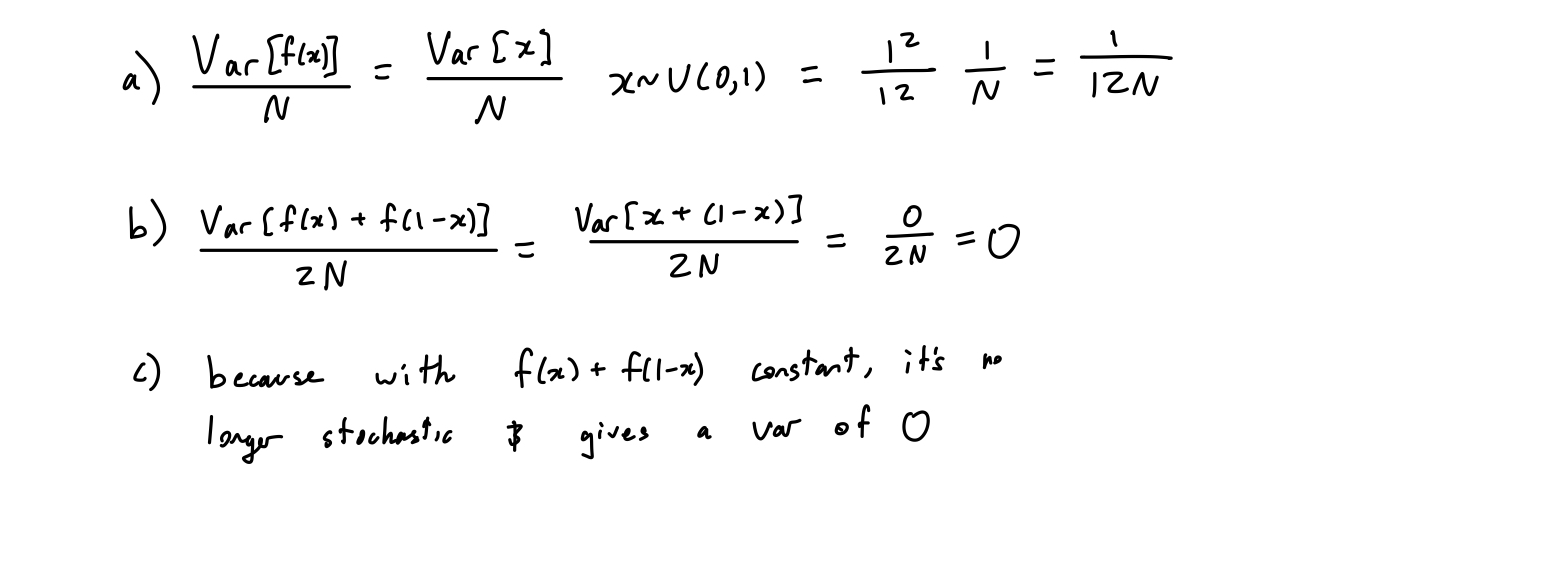 a) Var[f(x)] / N = Var[x] / N x~U(0,1) = 1² / 12 1 / N = 1 / 12N
b) Var[f(x) + f(1-x)] / 2N = Var[x + (1-x)] / 2N = 0 / 2N = 0
c) because with f(x) + f(1-x) constant, it's no
longer stochastic & gives a var of 0